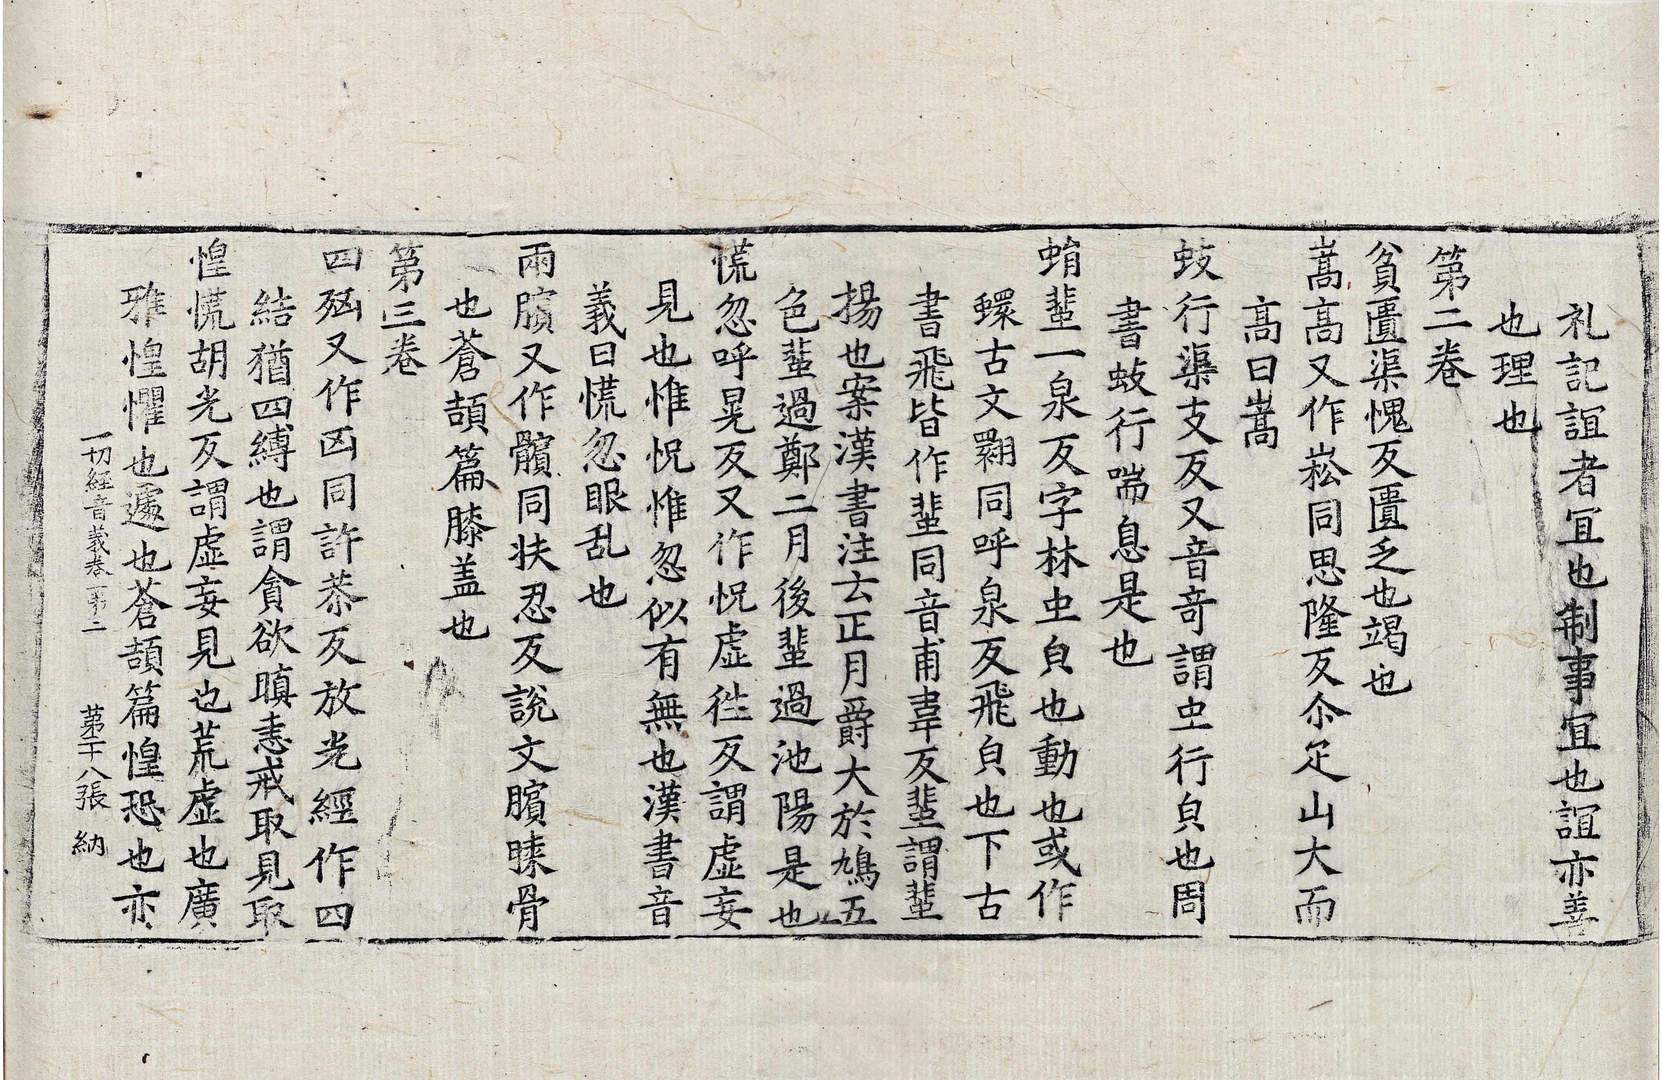 礼記誼者冝也制事冝也誼亦善
也理也
第二卷
貧匱渠愧反匱乏也竭也
嵩高又作崧同思隆反尒疋山大而
高曰嵩
蚑行渠支反又音奇謂虫行皃也周
書蚑行喘息是也
蜎蜚一泉反字林虫皃也動也或作
蠉古文翾同呼泉反飛皃也下古
書飛皆作蜚同音甫韋反蜚謂蜚
揚也案漢書注云正月爵大於鳩五
色蜚過鄭二月後蜚過池陽是也
慌忽呼晃反又作怳虛徃反謂虛妄
見也惟怳惟忽似有無也漢書音
義曰慌忽眼乱也
兩臏又作髕同扶忍反說文臏膝骨
也蒼頡篇膝盖也
第三卷
四㓙又作凶同許恭反放光經作四
結猶四縛也謂貪欲瞋恚戒取見取
惶慌胡光反謂虛妄見也荒虛也廣
雅惶懼也遽也蒼頡篇惶恐也亦
一切經音義卷第二 第十八張 納